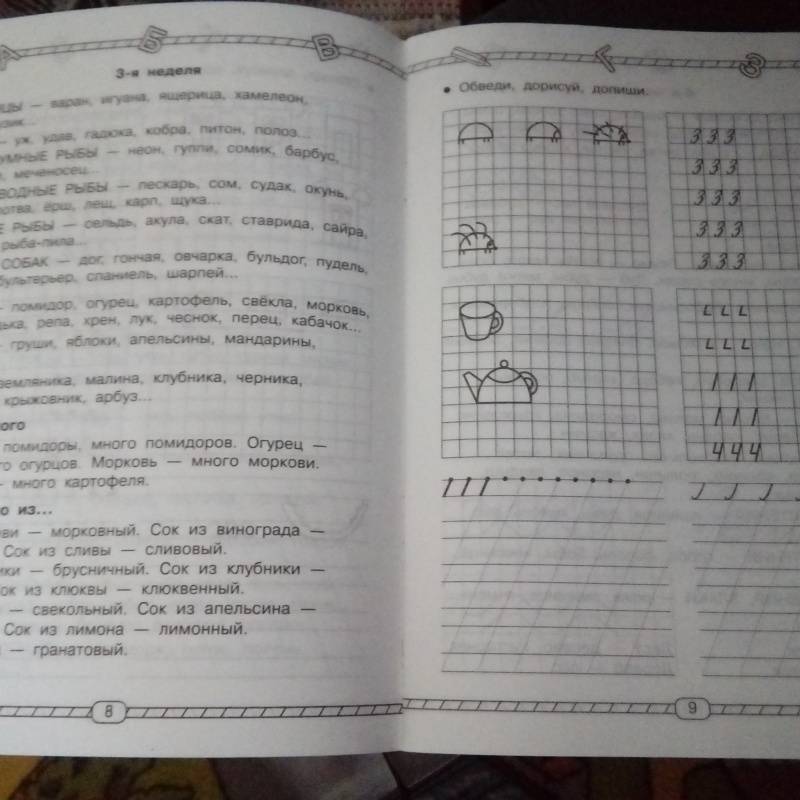 А Б В
3-я неделя
— варан, игуана, ящерица, хамелеон,
— уж, удав, гадюка, кобра, питон, полоз...
РЫБЫ — неон, гуппи, сомик, барбус,
меченосец...
РЫБЫ — пескарь, сом, судак, окунь,
ёрш, лещ, карп, щука...
РЫБЫ — сельдь, акула, скат, ставрида, сайра,
рыба-пила...
СОБАК — дог, гончая, овчарка, бульдог, пудель,
бультерьер, спаниель, шарпей...
— помидор, огурец, картофель, свёкла, морковь,
репа, хрен, лук, чеснок, перец, кабачок...
— груши, яблоки, апельсины, мандарины,
земляника, малина, клубника, черника,
крыжовник, арбуз...
помидоры, много помидоров. Огурец —
огурцов. Морковь — много моркови.
— много картофеля.
из...
— морковный. Сок из винограда —
Сок из сливы — сливовый.
— брусничный. Сок из клубники —
из клюквы — клюквенный.
— свекольный. Сок из апельсина —
Сок из лимона — лимонный.
— гранатовый.
8
3
• Обведи, дорисуй, допиши.
3 3 3
3 3 3
3 3 3
3 3 3
3 3 3
4 4 4
9